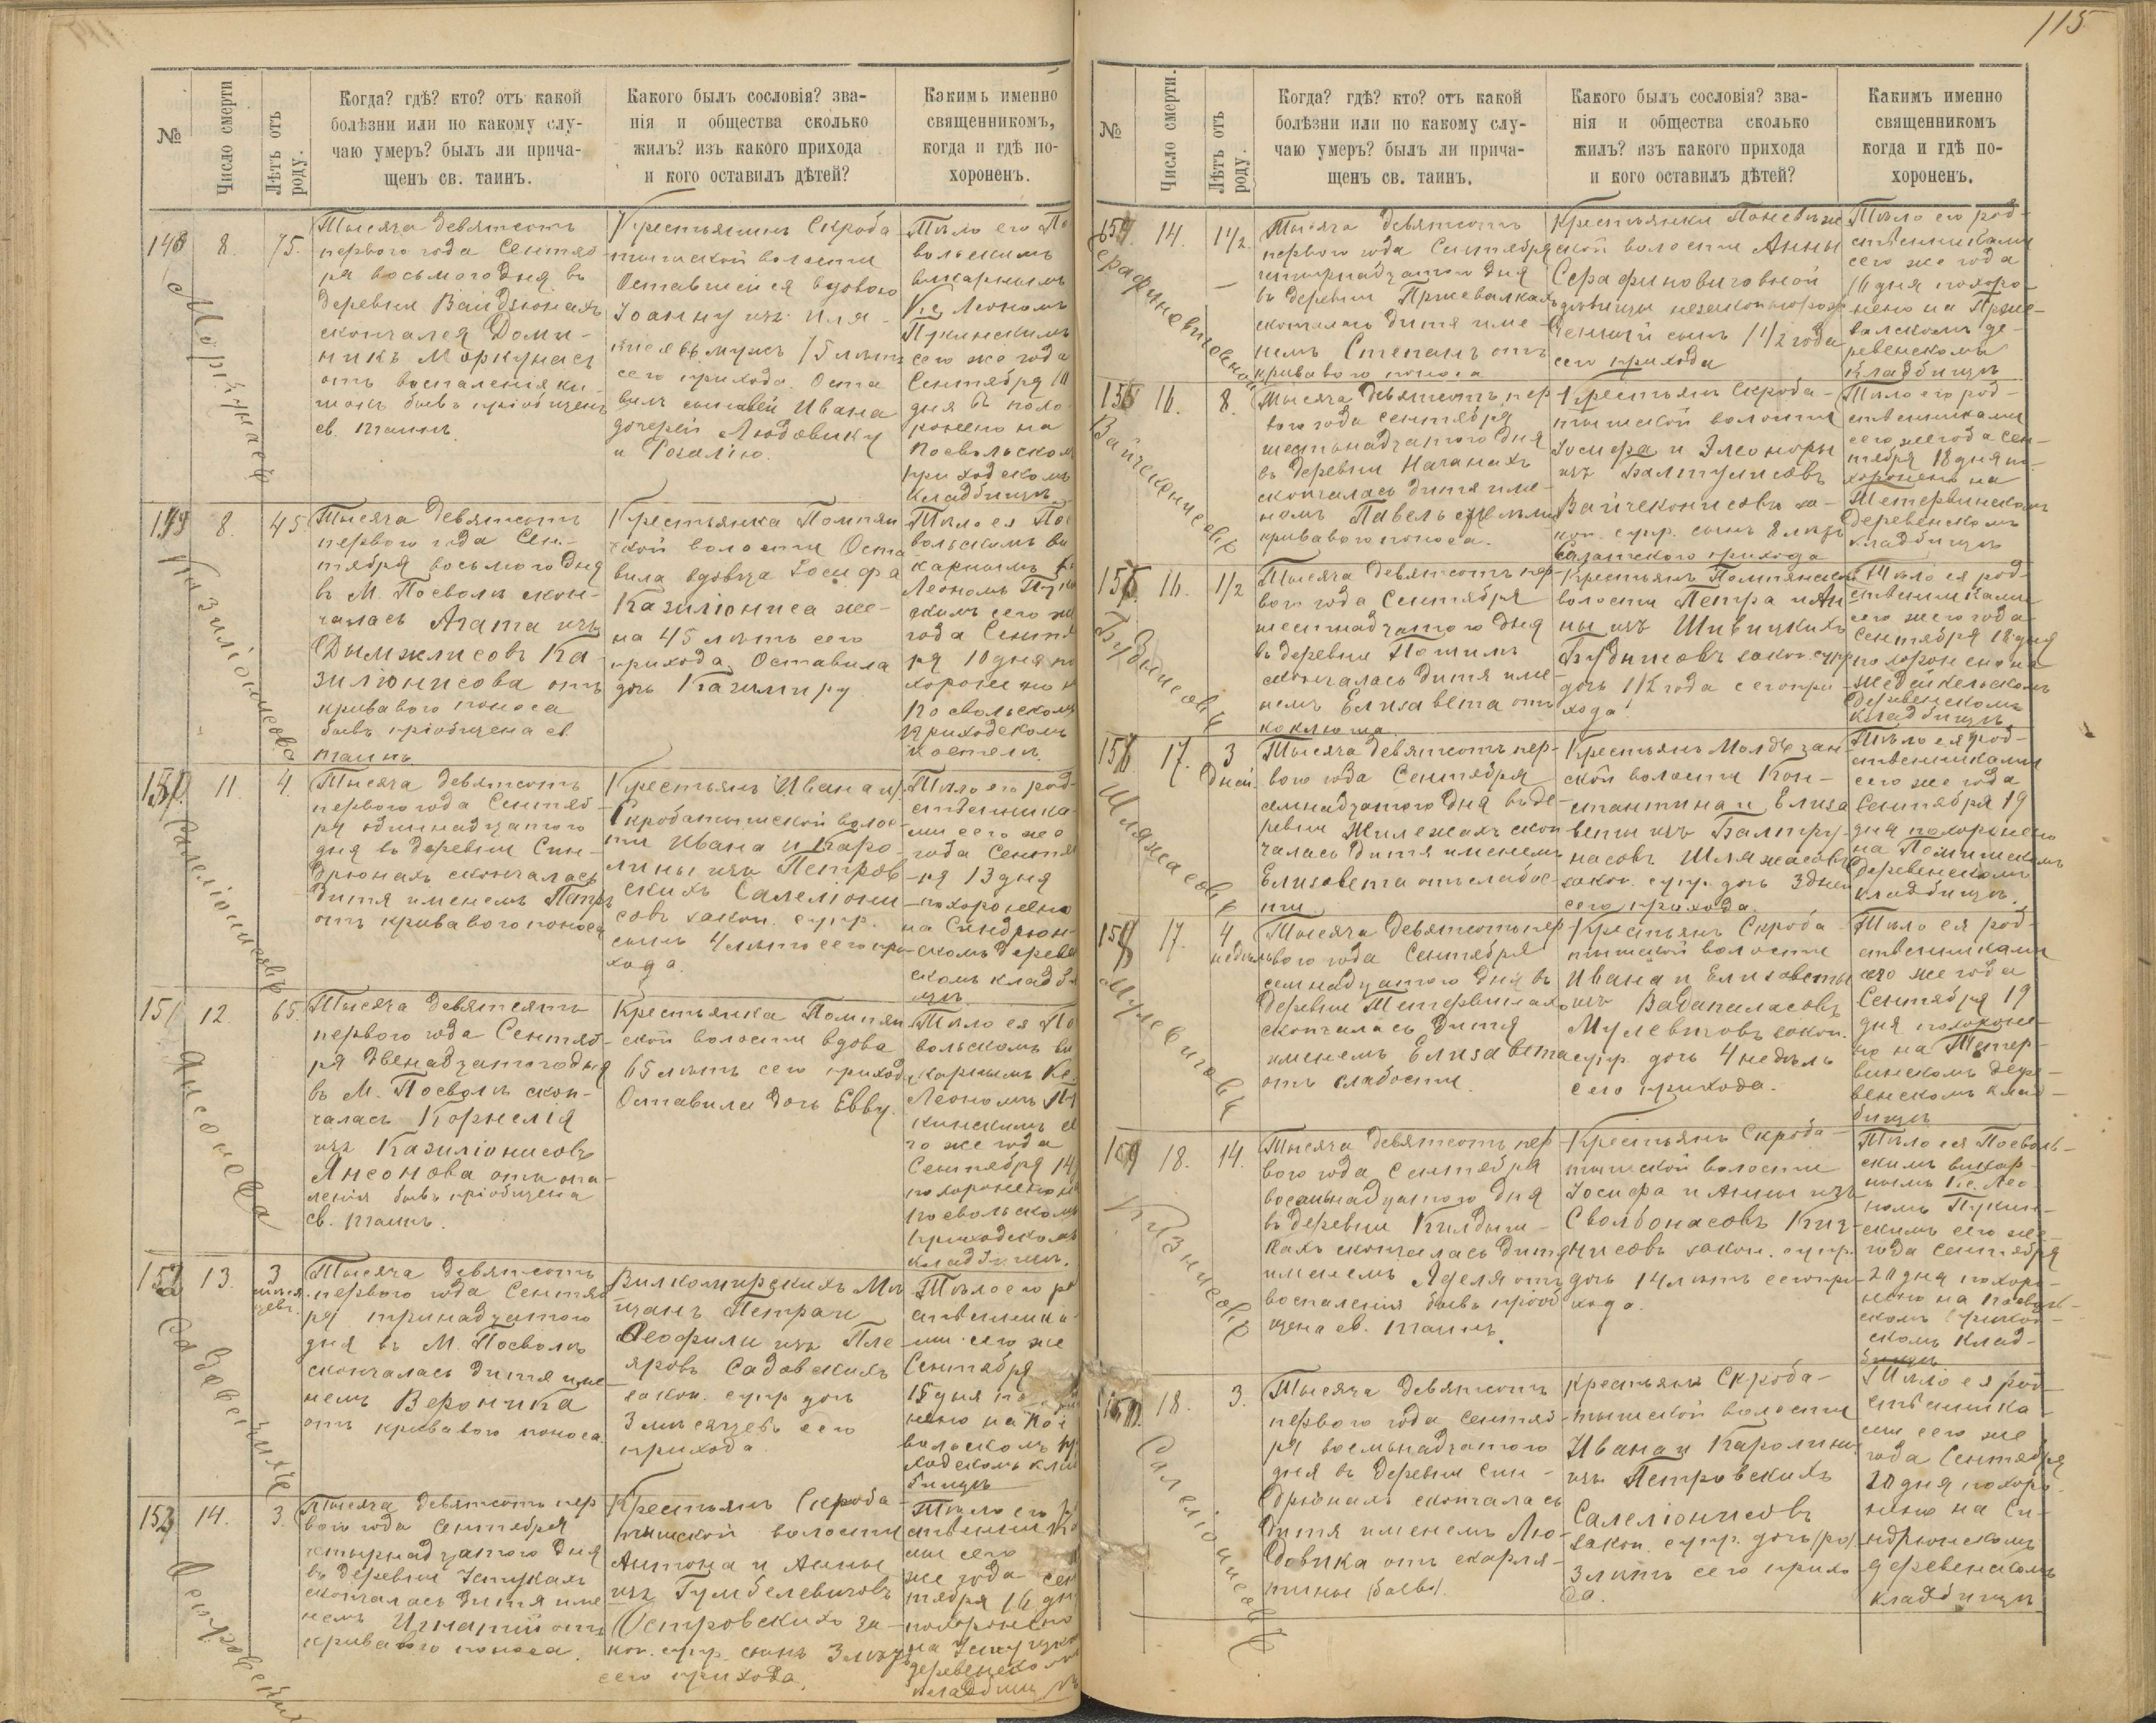 115
№
Число смерти
Лѣтъ отъ роду.
Когда? гдѣ? кто? отъ какой
болѣзни или по какому слу-
чаю умеръ? былъ ли прича-
щенъ св. таинъ.
Какого былъ сословія? зва-
нія и общества сколько
жилъ? изъ какого прихода
и кого оставилъ дѣтей?
Какимъ именно
священникомъ,
когда и гдѣ по-
хороненъ.
148
8.
75.
Моркунасъ
Тысяча девятьсотъ
перваго года Сентяб
ря восьмого дня въ
деревни Вайдзюнахъ
скончался Доми-
никъ Моркунасъ
отъ воспаленія ки-
шокъ бывъ пріобщенъ
св. таинъ.
Крестьянинъ Скроба
тишской волости
Оставшейся вдовою
Іоанну изъ
75 лѣтъ
сего прихода. Оста
вилъ сыновей Ивана
дочерей Людовику
и Розалію.
Тѣло его По
вольскимъ
викарнымъ
Кс. Леономъ
Пукинскимъ
сего же года
Сентября 10
дня похо
ронено на
Посвольском
приходскомъ
кладбищѣ.
149
8.
45.
Казиліонисова
Тысяча девятьсотъ
перваго года Сен-
тября восьмого дня
въ М. Посволи скон-
чалась Агата изъ
Дымжлисовъ Ка
зиліонисова отъ
криваваго поноса
бывъ пріобщена св
таинъ
Крестьянка Помпян
ской волости Оста
вила вдовца Іосифа
Казиліониса же-
на 45 лѣтъ сего
прихода. Оставила
дочь Казимиру
Тѣло ея По
вольскимъ ви
карнымъ
Леономъ Пук
скимъ сего же
года Сентя
ря 10 дня по
хоронено н
Посвольскомъ
приходскомъ
150
11.
4.
Салеліонисовъ
Тысяча девятьсотъ
перваго года Сентяб-
ря одинадцатого
дня въ деревни Син-
дрюнахъ скончалась
дитя именемъ Петръ
отъ криваваго поноса
Крестьянъ Ивана и
Скробатишской волос-
ти Ивана и Каро-
лины изъ Петров
скихъ Салеліони
совъ закон. супр.
сынъ 4 лѣтъ сего при-
хода.
Тѣло его род-
ственника-
ми сего же
года Сентяб
ря 13 дня
похоронено
на Синдрюн-
скомъ дерев
скомъ кладби
щѣ.
151
12
65.
Ансонова
Тысяча девятьсотъ
перваго года Сентяб-
ря двенадцатого дня
въ М. Посволи скон-
чалась Корнелія
изъ Казиліонисовъ
Ансонова отъ
бывъ пріобщена
св. таинъ.
Крестьянка Помпян
ской волости вдова
65 лѣтъ сего прихода
Оставила дочь Евву.
Тѣло ея По
вольскимъ ви
карнымъ Кс.
Леономъ Пу
кинскимъ се
го же года
Сентября 14
похоронено н
Посвольскомъ
приходскомъ
кладбищѣ.
152
13.
3
мѣся
цев.
Садовскихъ
Тысяча девятьсотъ
перваго года Сентяб
ря тринадцатого
дня въ М. Посволи
скончалась дитя име
немъ Вероника
отъ криваваго поноса.
Вилкомирскихъ Мѣ
щанъ Петра и
Ѳеофили изъ Пле
яровъ Садовскихъ
закон. супр дочь
3 мѣсяцевъ сего
прихода.
Тѣло его ро
ственника-
ми сего же
Сентября
15 дня по
нено на Пос
вольскомъ пр
ходскомъ клад
бищѣ
153
14.
3.
Островскихъ
Тысяча девятьсотъ пер
ваго года Сентября
четырнадцатого дня
въ деревни Устукахъ
скончалась дитя име
немъ Игнатій отъ
криваваго поноса.
Крестьянъ Скроба
тишской волости
Антона и Анны
изъ Гумбелевичовъ
Островскихъ за-
кон. супр. сынъ 3 лѣтъ
сего прихода.
Тѣло его
ственника
ми сего
же года Сен
тября 16 дн
похоронено
на
деревенском
кладбищѣ
№
Число смерти.
Лѣтъ отъ роду.
Когда? гдѣ? кто? отъ какой
болѣзни или по какому слу-
чаю умеръ? былъ ли прича-
щенъ св. таинъ.
Какого былъ сословія? зва-
нія и общества сколько
жилъ? изъ какого прихода
и кого оставилъ дѣтей?
Какимъ именно
священникомъ
когда и гдѣ по-
хороненъ.
154
14.
1 1/2
Серафиновичовной
Тысяча девятьсотъ
перваго года Сентября
четырнадцатого дня
въ деревни Пржевалкахъ
скончалась дитя име-
немъ Степанъ отъ
криваваго поноса
Крестьянки Поневѣж
ской волости Анны
Серафиновичовной
дѣвицы незаконнорож
денный сынъ 1 1/2 года
сего прихода
Тѣло его род-
ственниками
сего же года
16 дня похоро-
нено на Прже-
валскомъ де-
ревенскомъ
кладбищѣ
155
16.
8.
Вайчеконисовъ
Тысяча девятьсотъ пер-
ваго года Сентября
шестьнадцатого дня
въ деревни Наганахъ
скончалась дитя име-
немъ Павелъ
криваваго поноса.
Крестьян Скроба-
тишской волости
Іосифа и Элеоноры
изъ Балтулисовъ
Вайчеконисовъ за-
кон. супр. сынъ 8 лѣтъ
Салатского прихода
Тѣло его род-
ственниками
сего же года Сен-
тября 18 дня по-
хоронено на
Тетервинскомъ
деревенскомъ
кладбищѣ
156
16.
1/2
Будрисовъ
Тысяча девятьсотъ пер-
ваго года Сентября
шестнадцатого дня
въ деревни
скончалась дитя име-
немъ Елизавета отъ
коклюша.
Крестьянъ Помпянской
волости Петра и Ан
ны изъ Шивицкихъ
закон. супр
дочь 1/2 года сего при-
хода.
Тѣло ея род-
ственниками
сего же года
Сентября 18 дня
похоронено на
деревенскомъ
кладбищѣ.
157
17.
3
дней.
Шляжасовъ
Тысяча девятьсотъ пер-
ваго года Сентября
семнадцатого дня въ де-
ревни Жилежахъ скон
чалась дитя именемъ
Елизавета отъ слабос-
ти.
Крестьянъ
ской волости Кон-
стантина и Елиза
веты изъ Балтру-
насовъ Шляжасовъ
закон. супр. дочь 3 дней
сего прихода.
Тѣло ея род-
ственниками
сего же года
Сентября 19
дня похоронено
на
деревенскомъ
кладбищѣ.
158
17.
4
недѣль
Мулевичовъ
Тысяча девятьсотъ пер
ваго года Сентября
семнадцатого дня въ
деревни Тетервинахъ
скончалась дитя
именемъ Елизавета
отъ слабости.
Крестьянъ Скроба-
тишской волости
Ивана и Елизаветы
изъ Вадапаласовъ
Мулевичовъ закон.
супр. дочь 4 недѣль
сего прихода.
Тѣло ея род-
ственниками
сего же года
Сентября 19
дня похороне-
но на Тетер-
винскомъ дере-
венскомъ клад-
бищѣ
159
18.
14.
Кизнисовъ
Тысяча девятьсотъ пер
ваго года Сентября
восемьнадцатого дня
въ деревни Килдыши-
кахъ скончалась дитя
именемъ Аделя отъ
воспаленія бывъ пріоб
щена св. таинъ.
Крестьянъ Скроба-
тишской волости
Іосифа и Анны изъ
Сволбонасовъ Киз-
нисовъ закон. супр.
дочь 14 лѣтъ сего при-
хода.
Тѣло ея Посволь-
скимъ викар-
нымъ Кс. Лео-
номъ Пукин-
скимъ сего же
года Сентября
20 дня похоро-
нено на Посволь-
скомъ приход-
скомъ клад-
бищѣ
160.
18.
3.
Салеліонисовъ
Тысяча девятьсотъ
перваго года Сентяб-
ря восемьнадцатого
дня въ деревни Син-
дрюнахъ скончалась
дитя именемъ Лю-
довика отъ скарля-
тины
Крестьянъ Скроба-
тишской волости
Ивана и Каролины
изъ Петровскихъ
Салеліонисовъ
закон. супр. дочь
3 лѣтъ сего прихо
да.
Тѣло ея род-
ственника-
ми сего же
года Сентября
20 дня похоро-
нено на Си-
ндрюнскомъ
деревенскомъ
кладбищѣ